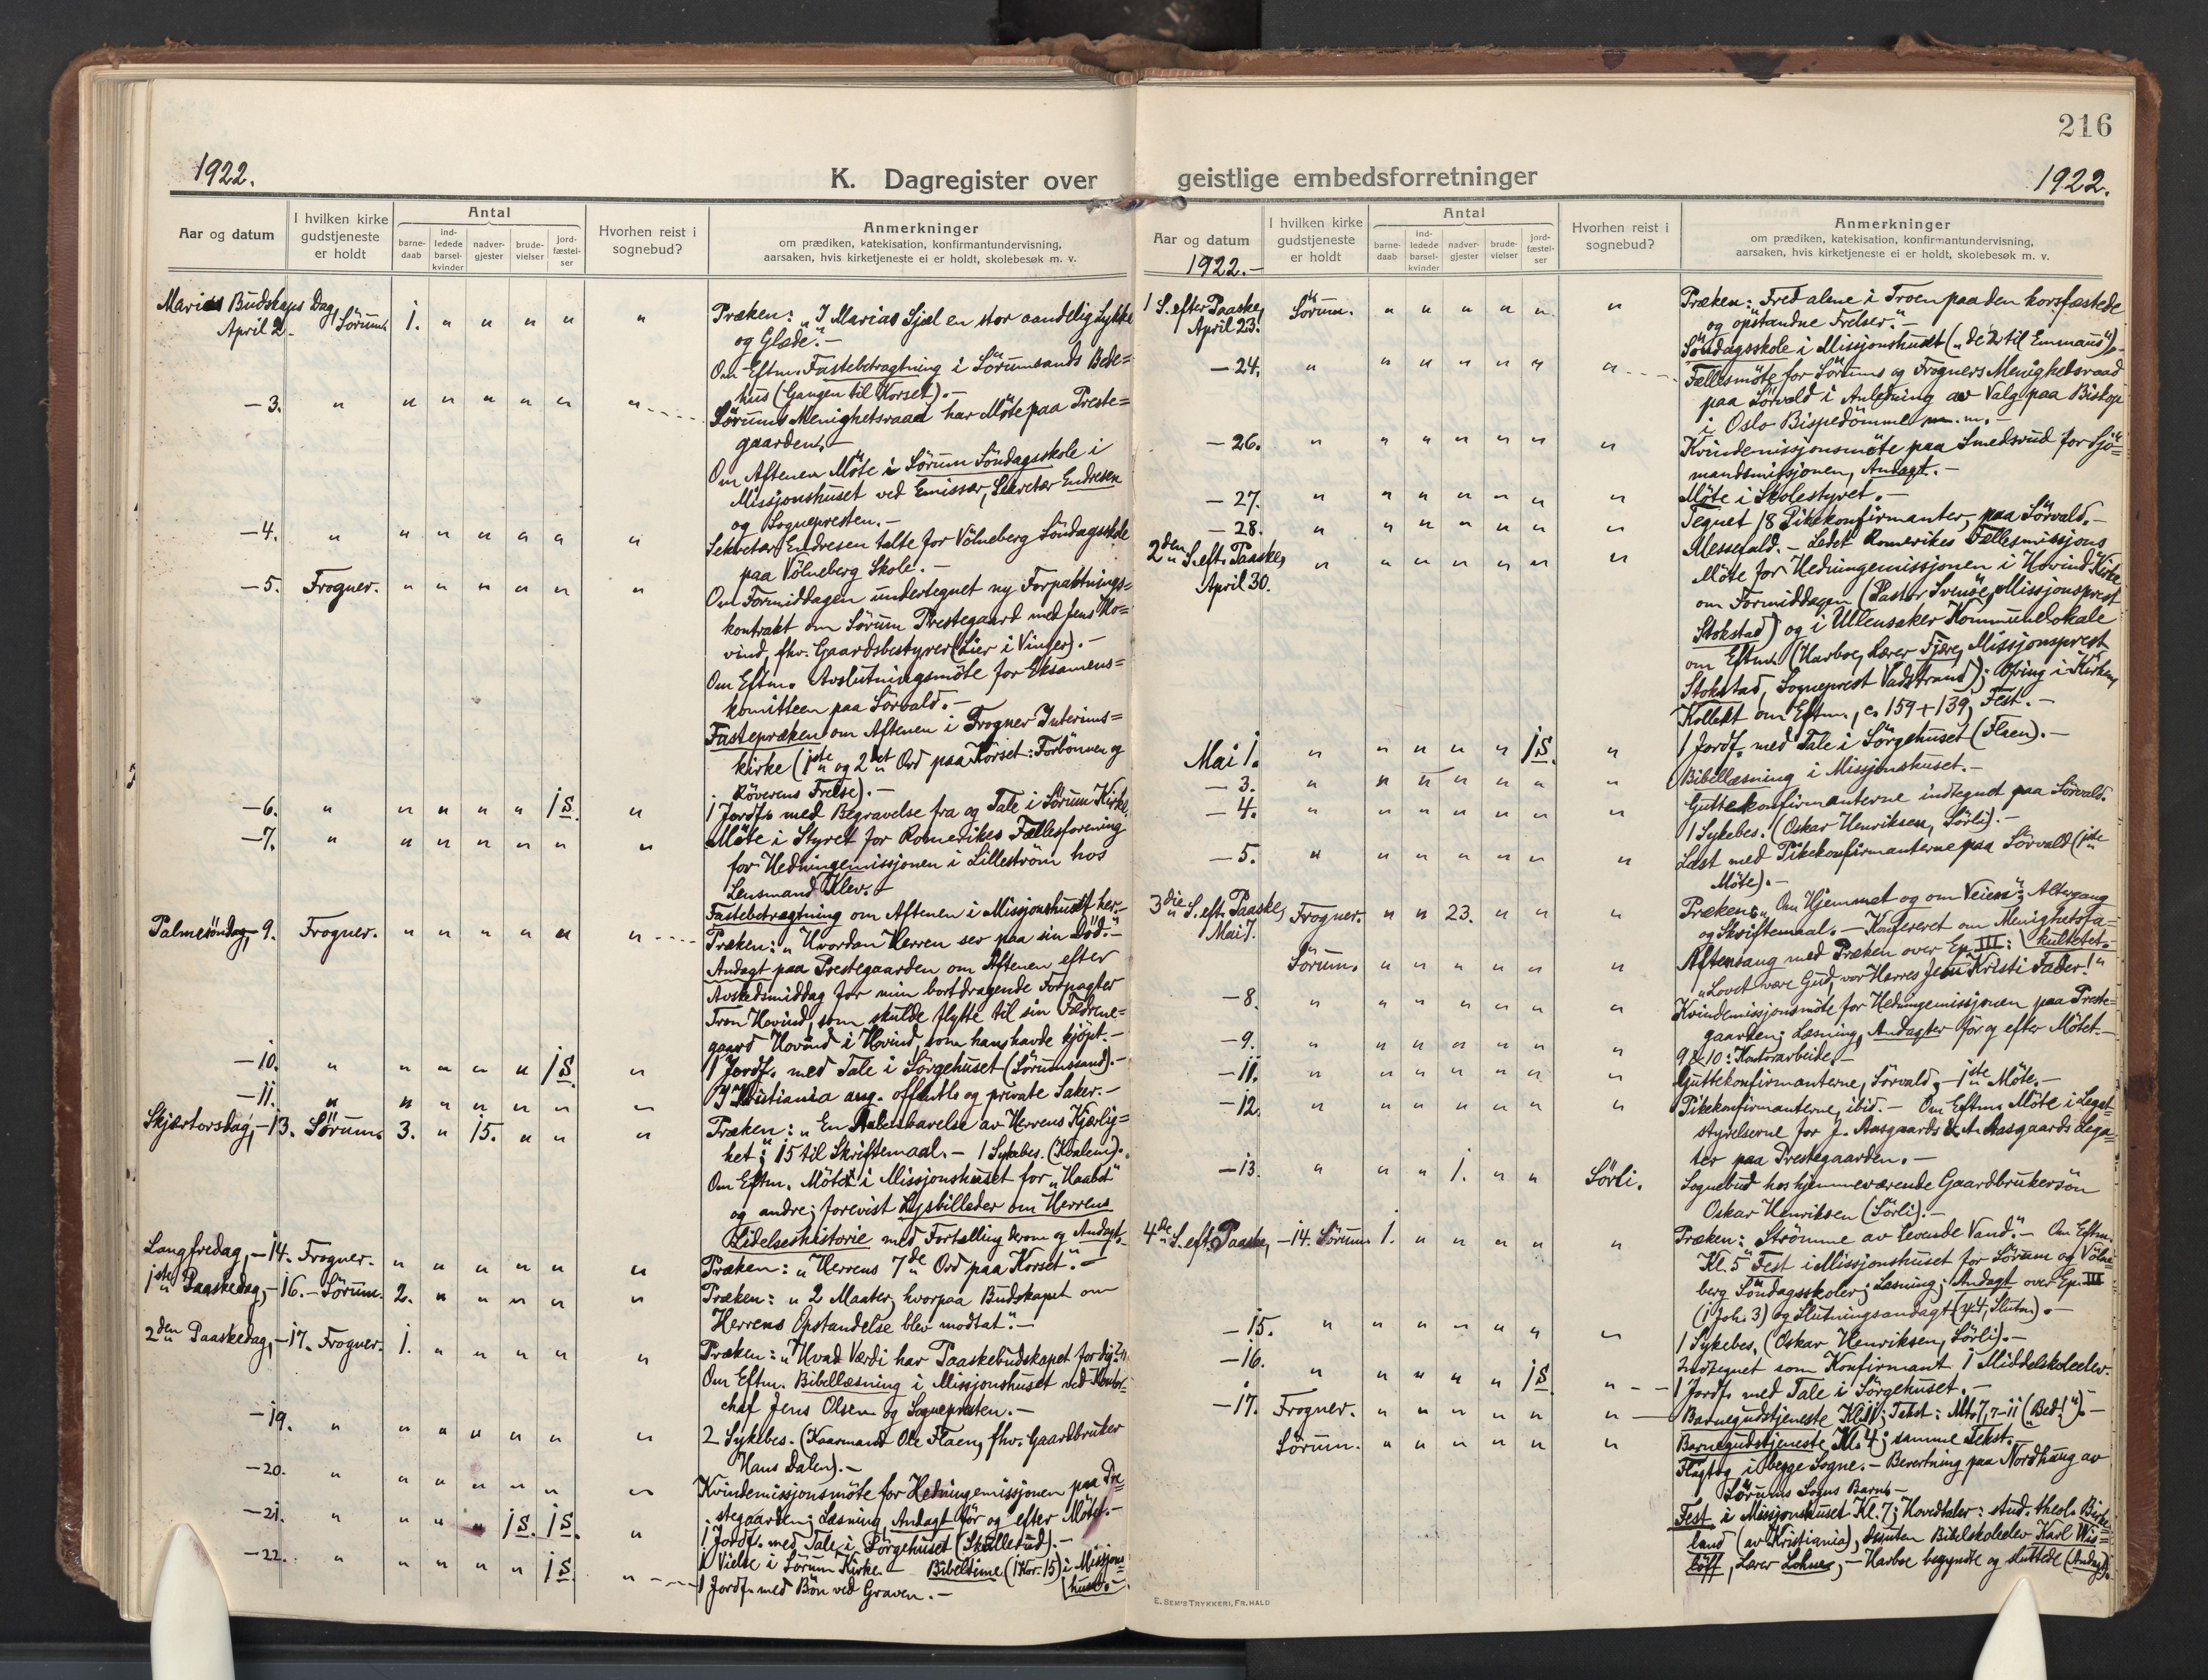 216
1922.
K. Dagregister over
Aar og datum
I hvilken kirke gudstjeneste er holdt
Antal
barne-daab
ind-ledede barsel-kvinder
nadver-gjester
brude-vielser
jord-fæstel-ser
Hvorhen reist i sognebud?
Anmerkninger
om prædiken, katekisation, konfirmantundervisning,
aarsaken, hvis kirketjeneste ei er holdt, skolebesøk m. v.
Marias Budskaps Dag,
April 2. Sörum. 1. " " " " " Præken: "I Marias Sjæl en stor aandelig Lykke
og Glæde". –
Om Eftm. Fastebetragtning i Sörumsands Bede=
hus (Gangen til Korset). –
– 3. " " " " " " " Sörums Menighetsraad har Möte paa Preste=
gaarden. –
Om Aftenen Möte i Sörum Söndagsskole i
Missjonshuset ved Emissær, Sekretær Endresen
og Sognepresten. –
– 4. " " " " " " " Sekretær Endresen talte for Völneberg Söndagsskole
paa Völneberg Skole. –
– 5. Frogner. " " " " " " Om Formiddagen undertegnet ny Forpaktnings=
kontrakt om Sörum Prestegaard med Jens Ho=
vind, fhv. Gaardsbestyrer (Lier i Vinger). –
Om Eftm. Avslutningsmöte for Eksamens=
komitteen paa Sörvald. –
Fastepræken om Aftenen i Frogner Interims=
kirke (1ste og 2det Ord paa Korset: Forbönnen og
Röverens Frelse). –
– 6. " " " " " 1 S. " 1 Jordf. med Begravelse fra og Tale i Sörum Kirke.
– 7. " " " " " " " Möte i Styret for Romerikes Fællesforening
for Hedningemissjonen i Lilleström hos
Lensmand Klev. –
Fastebetragtning om Aftenen i Missjonshuset her. –
Palmesöndag, – 9. Frogner. " " " " " " Præken: "Hvordan Herren ser paa sin Död". –
Andagt paa Prestegaarden om Aftenen efter
Avskedsmiddag for min bortdragende Forpagter
Tron Hovind, som skulde flytte til sin Fædrene=
gaard Hovind i Hovind, som han havde kjöpt. –
– 10. " " " " " 1 S. " 1 Jordf. med Tale i Sörgehuset (Sörumsand). –
– 11. " " " " " " " I Kristiania ang. offentl. og private Saker. –
Skjærtorsdag, – 13. Sörum. 3. " 15. " " " Præken: "En Aabenbarelse av Herrens Kjærlig=
het"; 15 til Skriftemaal. – 1 Sykebes. (Kvalem).
Om Eftm. Möter i Missjonshuset for "Haabet"
og andre; forevist Lysbilleder om Herrens
Lidelseshistorie med Fortælling derom og Andagt. –
Langfredag, – 14. Frogner. " " " " " " Præken: "Herrens 7de Ord paa Korset". –
1ste Paaskedag, – 16. – Sörum. 2. " " " " " Præken: "2 Maater, hvorpaa Budskapet om
Herrens Opstandelse blev modtat". –
2den Paaskedag, – 17. Frogner. 1. " " " " " Præken: "Hvad Værdi har Paaskebudskapet for dig?"
Om Eftm. Bibellæsning i Missjonshuset ved Kontor-
chef Jens Olsen og Sognepresten. –
– 19. " " " " " " " 2 Sykebes. (Kaarmand Ole Flaen, fhv. Gaardbruker
Hans Dalen). –
– 20. " " " " " " " Kvindemissjonsmöte for Hedningemissjonen paa Pre=
stegaarden; Læsning, Andagt för og efter Mötet. –
– 21. " " " " 1 S. 1 S. " 1 Jordf. med Tale i Sörgehuset (Skullerud). –
1 Vielse i Sörum Kirke. – Bibeltime (1 Kor. 15) i Missjons=
huset. –
– 22. " " " " " 1 S. " 1 Jordf. med Bön ved Graven. –
1922.
geistlige embedsforretninger
Aar og datum
1922. –
I hvilken kirke gudstjeneste er holdt
Antal
barne-daab
ind-ledede barsel-kvinder
nadver-gjester
brude-vielser
jord-fæstel-ser
Hvorhen reist i sognebud?
Anmerkninger
om prædiken, katekisation, konfirmantundervisning,
aarsaken, hvis kirketjeneste ei er holdt, skolebesøk m. v.
1 S. efter Paaske,
April 23. Sörum. " " " " " " Præken: Fred alene i Troen paa den korsfæstede
og opstandne Frelser". –
Söndagsskole i Missjonshuset ("de 2 til Emmaus"). –
– 24. " " " " " " " Fællesmöte for Sörums og Frogners Menighetsraad
paa Sörvald i Anledning av Valg paa Biskop
i Oslo Bispedömme m. m. –
– 26. " " " " " " " Kvindemissjonsmöte paa Smedsrud for Sjö=
mandsmissjonen, Andagt. –
– 27. " " " " " " " Möte i Skolestyret. –
– 28. " " " " " " " Tegnet 18 Pikekonfirmanter, paa Sörvald. –
2den S. eft. Paaske,
April 30. " " " " " " " Messefald. – Ledet Romerikes Fællesmissjons
Möte for Hedningemissjonen i Hovind Kirke
om Formiddagen (Pastor Svensöe, Missjonsprest
Stokstad) og i Ullensaker Kommunelokale
om Eftm. (Harboe, Lærer Fjære, Missjonsprest
Stokstad, Sogneprest Vadstrand); Ofring i Kirken,
Kollekt om Eftm., c. 159 + 139, Fest. –
Mai 1. " " " " " 1 S. " 1 Jordf. med Tale i Sörgehuset (Flaen). –
– 3. " " " " " " " Bibellæsning i Missjonshuset. –
– 4. " " " " " " " Guttekonfirmanterne indtegnet paa Sörvald.
1 Sykebes. (Oskar Henriksen, Sörli). –
– 5. " " " " " " " Læst med Pikekonfirmanterne paa Sörvald (1ste
Möte). –
3die S. eft. Paaske,
Mai 7. Frogner. " " 23. " " " Præken: "Om Hjemmet og om Veien"; Altergang
og Skriftemaal. – Konfereret om Menighetsfa=
kultetet. –
Sörum. " " " " " " Aftensang med Præken over Ep. III:
"Lovet være Gud, vor Herres Jesu Kristi Fader!"
– 8. " " " " " " " Kvindemissjonsmöte for Hedningemissjonen paa Preste=
gaarden; Læsning, Andagter för og efter Mötet. –
– 9. " " " " " " " 9 & 10: Kontorarbeide. –
– 11. " " " " " " " Guttekonfirmanterne, Sörvald, – 1ste Möte. –
– 12. " " " " " " " Pikekonfirmanterne, ibid. – Om Eftm. Möte i Legat=
styrelserne for J. Aasgaards & A. Aasgaards Lega=
ter paa Prestegaarden. –
– 13. " " " 1. " " Sörli. Sognebud hos hjemmeværende Gaardbrukersön
Oskar Henriksen (Sörli). –
4de S. eft. Paaske, – 14. Sörum 1. " " " " " Præken: Strömme av levende Vand". – Om Eftm.
Kl. 5 Fest i Missjonshuset for Sörum og Völne=
berg Söndagsskoler; Læsning; Andagt over Ep. III
(1 Joh. 3) og Slutningsandagt (4, Slutn). –
– 15. " " " " " " " 1 Sykebes. (Oskar Henriksen, Sörli). –
Indtegnet som Konfirmant 1 Middelskoleelev.
– 16. " " " " " 1 S. " 1 Jordf. med Tale i Sörgehuset. –
– 17. Frogner. " " " " " " Barnegudstjeneste Kl. 11; Tekst: Mt. 7, 7–11 ("Bed!"). –
Sörum. " " " " " " Barnegudstjeneste Kl. 4; samme Tekst. –
Flagtog i begge Sogne. – Bevertning paa Nordhaug av
Sörums Sogns Barn. –
Fest i Missjonshuset Kl. 7; Hovedtaler: stud. theol. Birke=
land (av Kristiania), desuten Bibelskoleelev Karl Wis=
löff, Lærer Lohne, – Harboe begyndte og sluttede (Andagt).
E. SEM'S TRYKKERI, FR. HALD